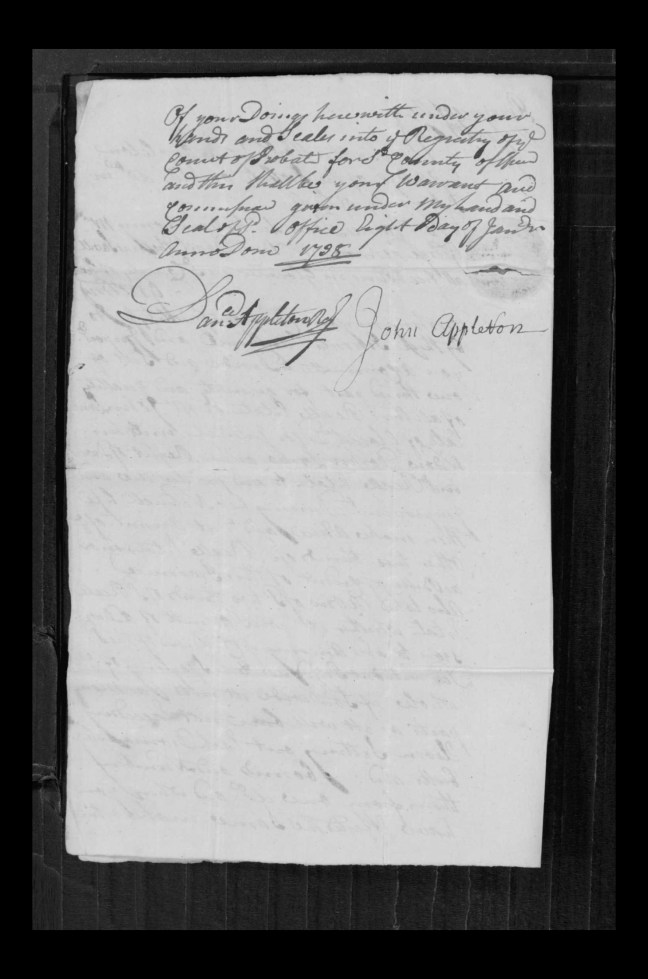 Of your Doings herewith under your
hands and Seales into ye Registry of ye
Court of Probate for Sd County
and this shall be your Warrant and
given under my hand and
Seal of Sd. office Eight Day of Janry
Anno Dom 1738
Danel Appleton Regr John Appleton